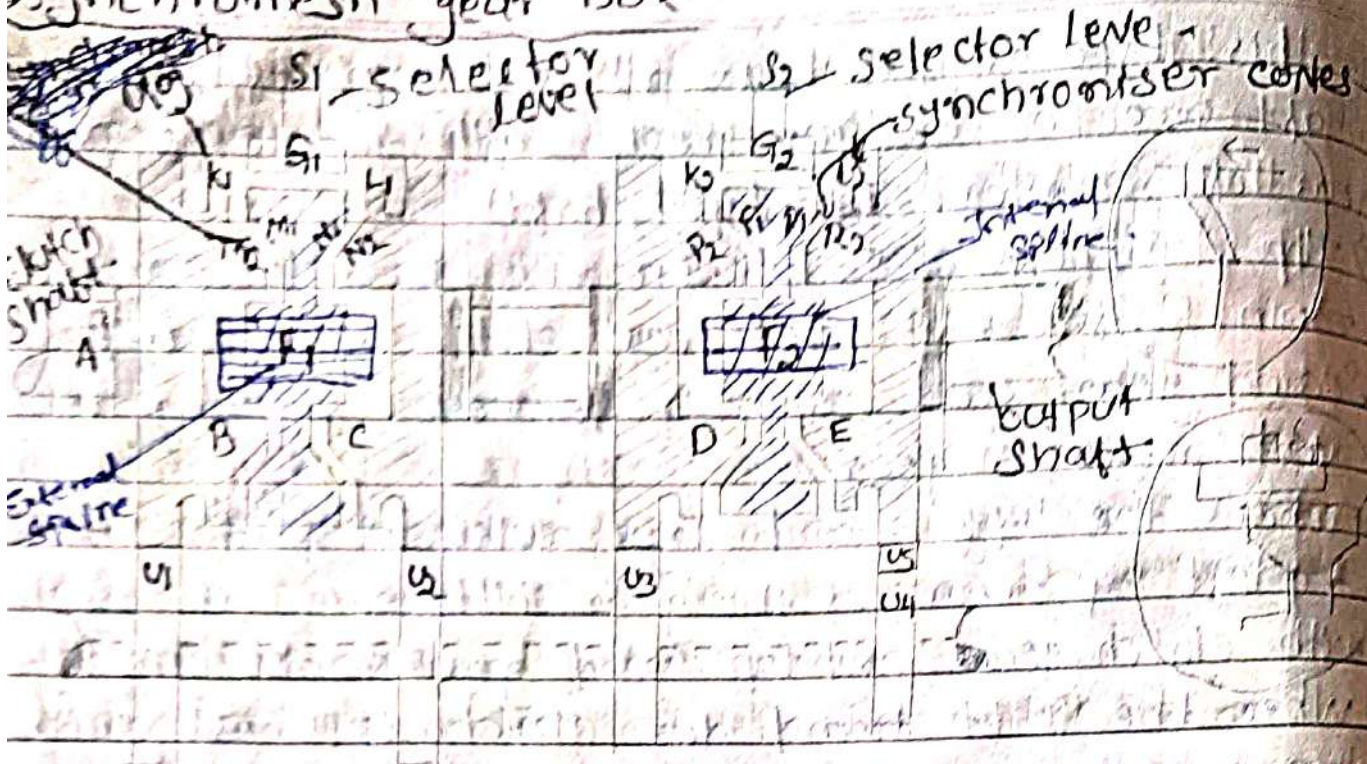 synchromesh gear box
S1 - selector level
S2 - selector leve -
synchroniser cones
K1 G1 L1
K2 G2 L2
M1 N1 N2
P2 P1 R1 R2
Internal spline
clutch shaft
A
F1
F2
B C D E
output shaft
External spline
U1 U2 U3 U5
U4